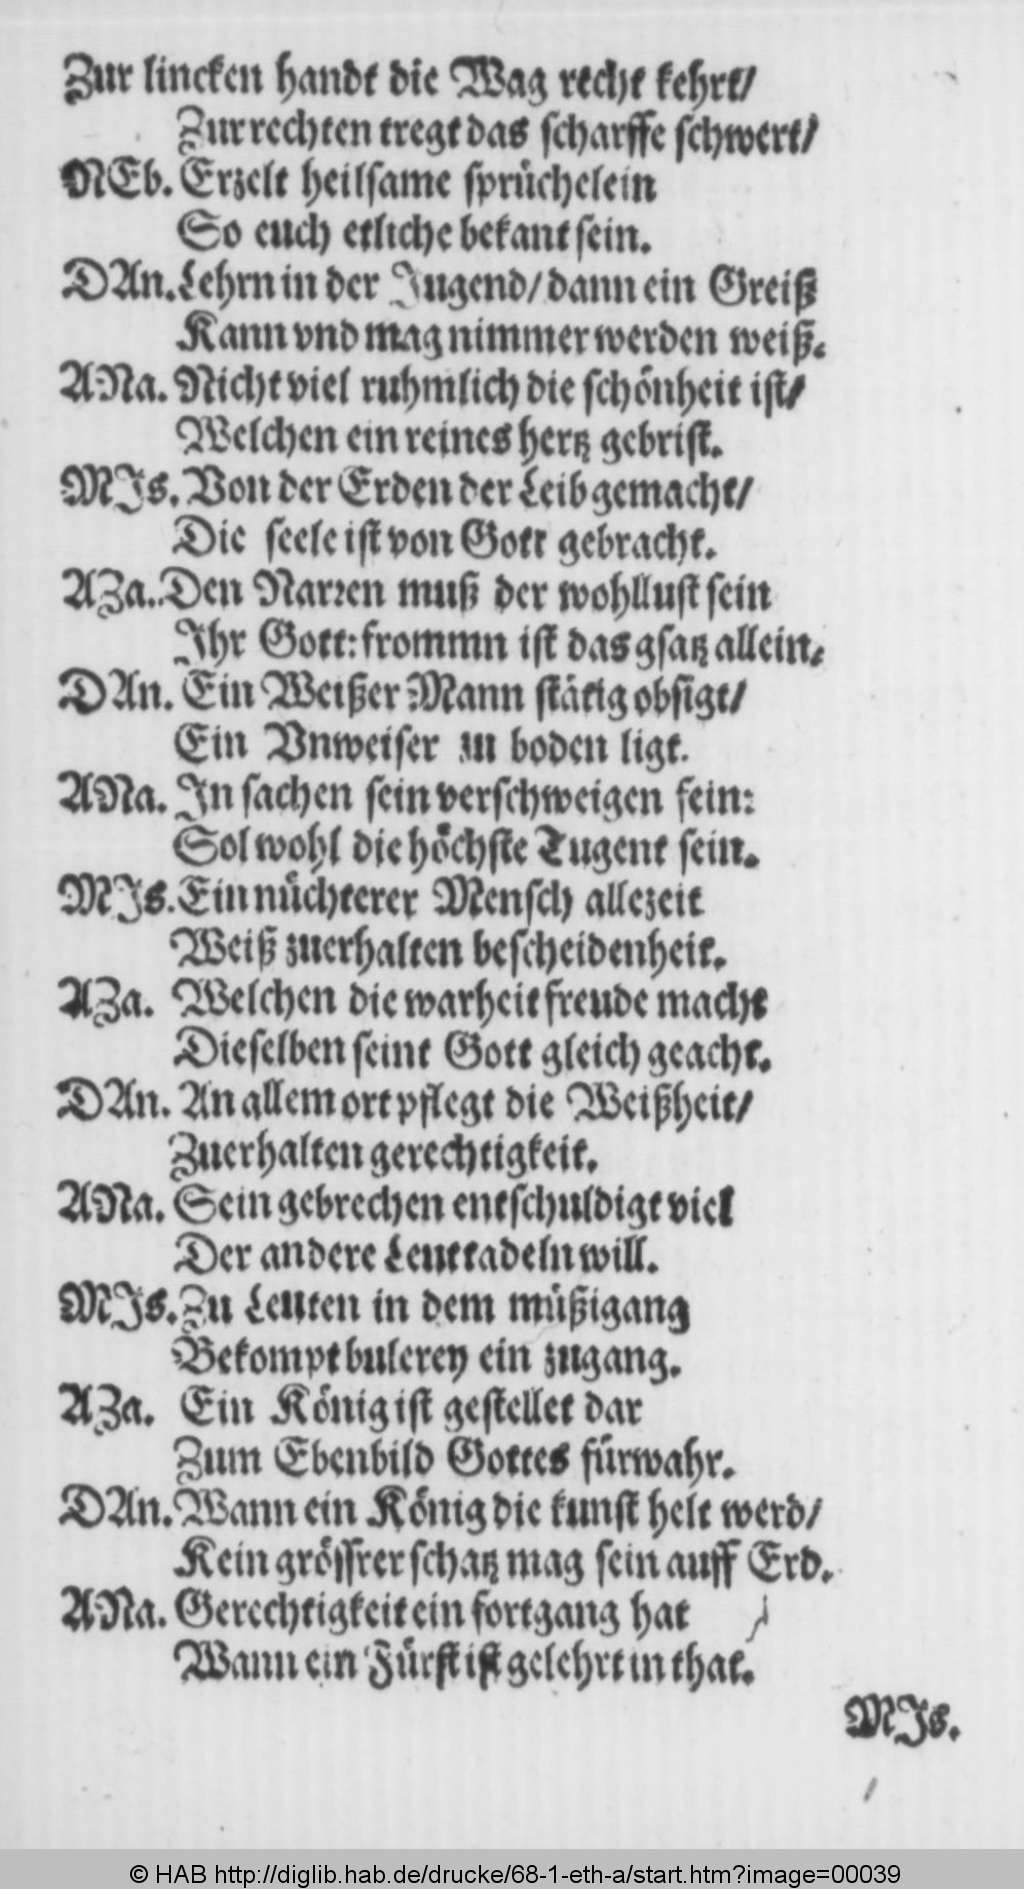 Zur lincken handt die Wag recht kehrt/
Zur rechten tregt das scharffe schwert/
NEb. Erzelt heilsame sprüchelein
So euch etliche bekant sein.
DAn. Lehrn in der Jugend/ dann ein Greiß
Kann vnd mag nimmer werden weiß.
ANa. Nicht viel ruhmlich die schönheit ist/
Welchen ein reines hertz gebrist.
MJs. Von der Erden der Leib gemacht/
Die seele ist von Gott gebracht.
AZa. Den Narren muß der wohllust sein
Jhr Gott: frommn ist das gsatz allein.
DAn. Ein Weißer Mann stätig obsigt/
Ein Vnweiser zu boden ligt.
ANa. Jn sachen sein verschweigen fein:
Sol wohl die höchste Tugent sein.
MJs. Ein nüchterer Mensch allezeit
Weiß zuerhalten bescheidenheit.
AZa. Welchen die warheit freude macht
Dieselben seint Gott gleich geacht.
DAn. An allem ort pflegt die Weißheit/
Zuerhalten gerechtigkeit.
ANa. Sein gebrechen entschuldigt viel
Der andere Leut tadeln will.
MJs. Zu Leuten in dem müßigang
Bekompt bulerey ein zugang.
AZa. Ein König ist gestellet dar
Zum Ebenbild Gottes fürwahr.
DAn. Wann ein König die kunst helt werd/
Kein grössrer schatz mag sein auff Erd.
ANa. Gerechtigkeit ein fortgang hat
Wann ein Fürst ist gelehrt in that.
MJs.
© HAB http://diglib.hab.de/drucke/68-1-eth-a/start.htm?image=00039